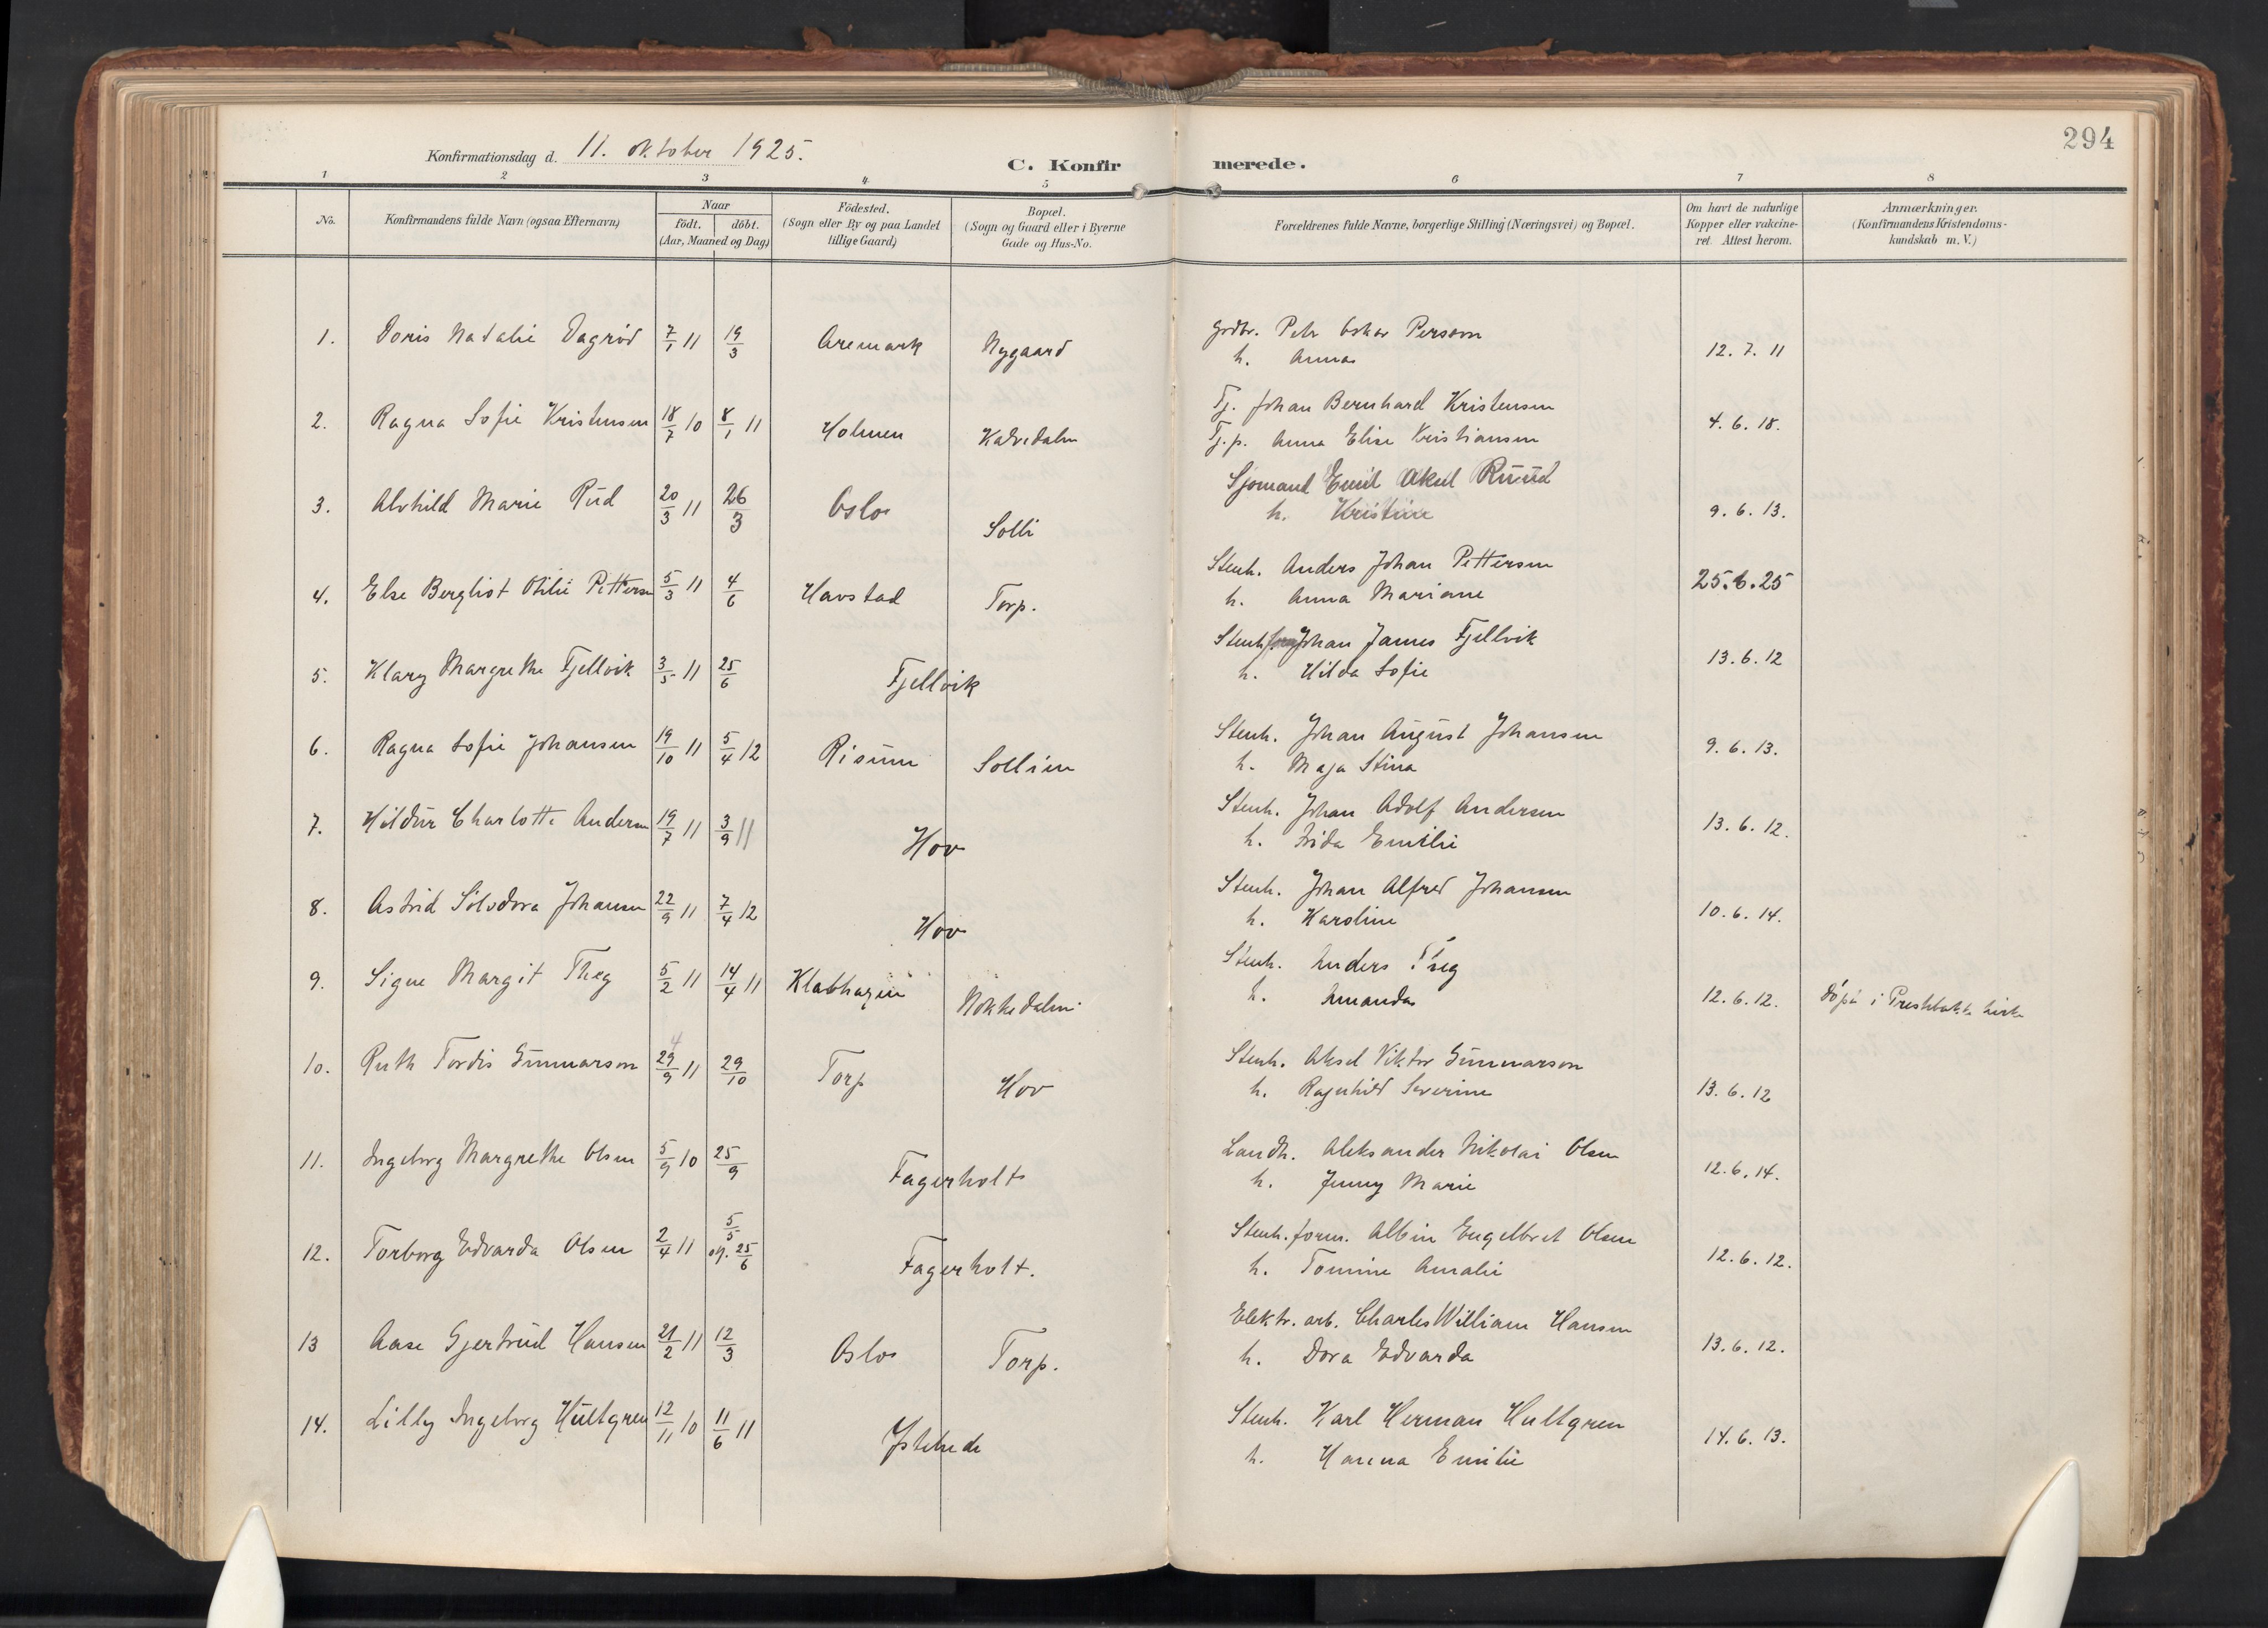 294
Konfirmationsdag d. 11. oktober 1925.
C. Konfirmerede.
1 2 3 4 5 6 7 8
No. Konfirmandens fulde Navn (ogsaa Efternavn) Naar födt. döbt. (Aar, Maaned og Dag) Födested. (Sogn eller By og paa Landet tillige Gaard) Bopæl. (Sogn og Gaard eller i Byerne Gade og Hus-No. Forældrenes fulde Navne, borgerlige Stilling (Næringsvei) og Bopæl. Om havt de naturlige Kopper eller vakcineret. Attest herom. Anmærkninger. (Konfirmandens Kristendomskundskab m. V.)
1. Doris Natalie Dagrød 7/1 11 19/3 Aremark Nygaard Grdbr. Petr Oskar Persson
h. Anna 12. 7. 11
2. Ragna Sofie Kristensen 18/7 10 8/1 11 Holmen Kalvedalen Tj. Johan Bernhard Kristensen
Tj.p. Anna Elise Kristiansen 4. 6. 18.
3. Alvhild Marie Rud 20/3 11 26/3 Oslo Solli Sjømand Emil Aksel Ruud
h. Kristine 9. 6. 13.
4. Else Bergliot Otilie Pettersen 5/3 11 4/6 Havstad Torp. Stenh. Anders Johan Pettersen
h. Anna Mariane 25.6.25
5. Klary Margrethe Fjellvik 3/5 11 25/6 Fjellvik Stenh. Johan James Fjellvik
h. Hilda Sofie 13. 6. 12
6. Ragna Sofie Johansen 19/10 11 5/4 12 Risum Sollien Stenh. Johan August Johansen
h. Maja Stina 9. 6. 13.
7. Hildur Charlotte Andersen 19/7 11 3/9 11 Hov Stenh. Johan Adolf Andersen
h. Frida Emilie 13. 6. 12.
8. Astrid Silvdora Johansen 22/9 11 7/4 12 Hov Stenh. Johan Alfred Johansen
h. Karoline 10. 6. 14.
9. Signe Margit Theg 5/2 11 14/4 11 Klabhagen Nokkedalen Stenh. Anders
h. Amanda 12. 6. 12. døpt i Prestebakke kirke
10. Ruth Tordis Gunnarson 29/9 11 4 29/10 Torp Hov Stenh. Aksel Viktor Gunnarson
h. Ragnhild Severine 13. 6. 12
11. Ingeborg Margrethe Olsen 5/9 10 25/9 Fagerholt Landh. Aleksander Nikolai Olsen
h. Jenny Marie 12. 6. 14.
12. Torborg Edvarda Olsen 2/4 11 5/5 og. 25/6 Fagerholt. Stenh. form. Albin Engelbret Olsen
h. Tomine Amalie 12. 6. 12.
13 Aase Gjertrud Hansen 21/2 11 12/3 Oslo Torp. Elektr. arb. Charles William Hansen
h. Dora Edvarda 13. 6. 12.
14. Lilly Ingeborg Hultgren 12/11 10 11/6 11 Ystehede Stenh. Karl Herman Hultgren
h. Hanna Emilie 14. 6. 13.